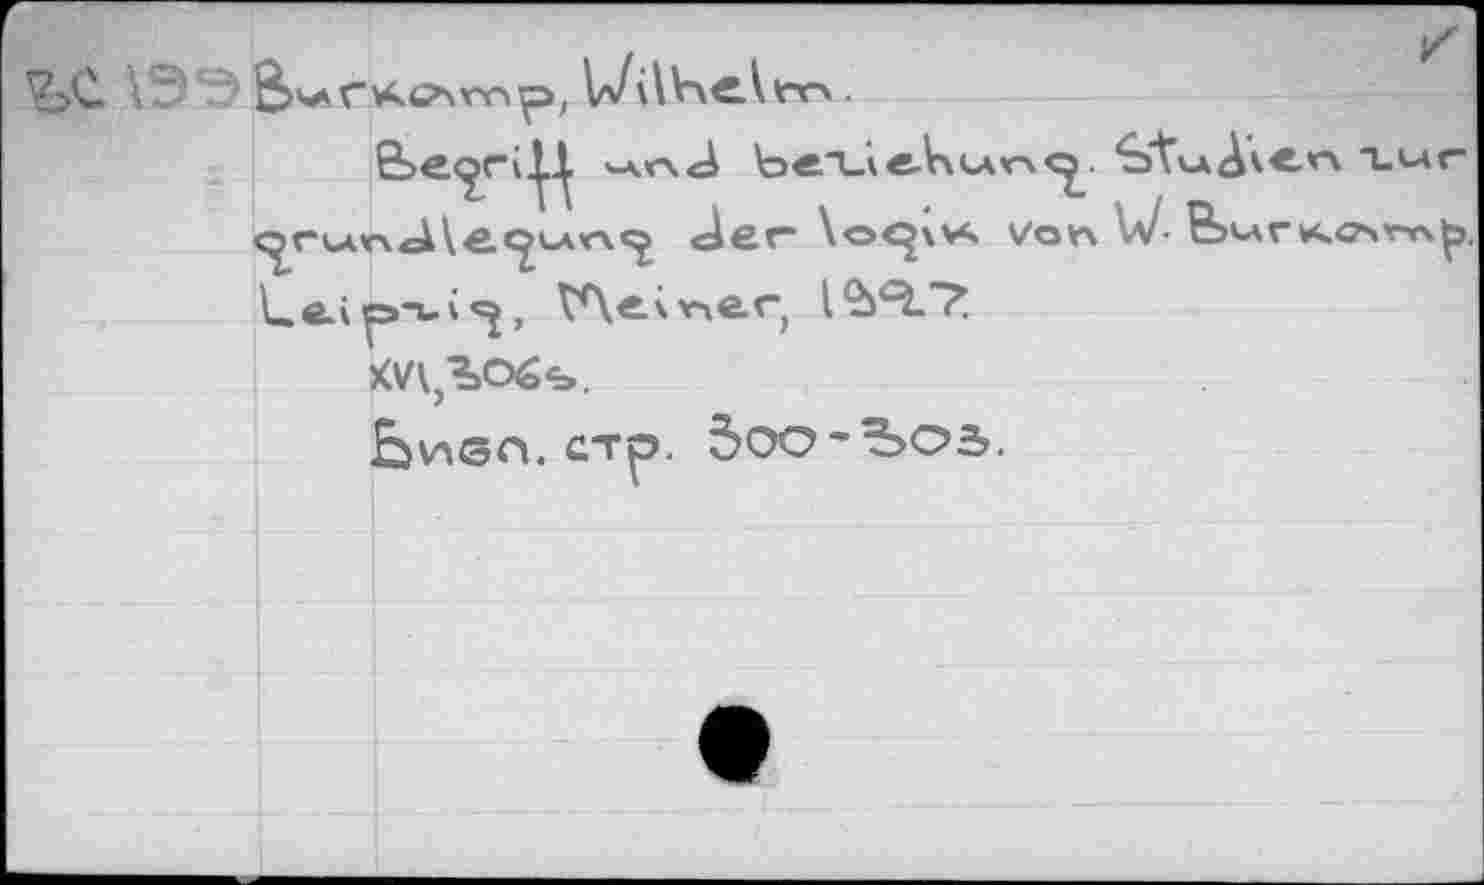 ЪС 199 Burkamp, Wilhelm.
Begriff und beziehung. Studien zur
grundlegung der logik von W. Burkamp.
Leipzig, Meiner, 1927.
XVI, 306 s.
Библ. стр. 300-303.